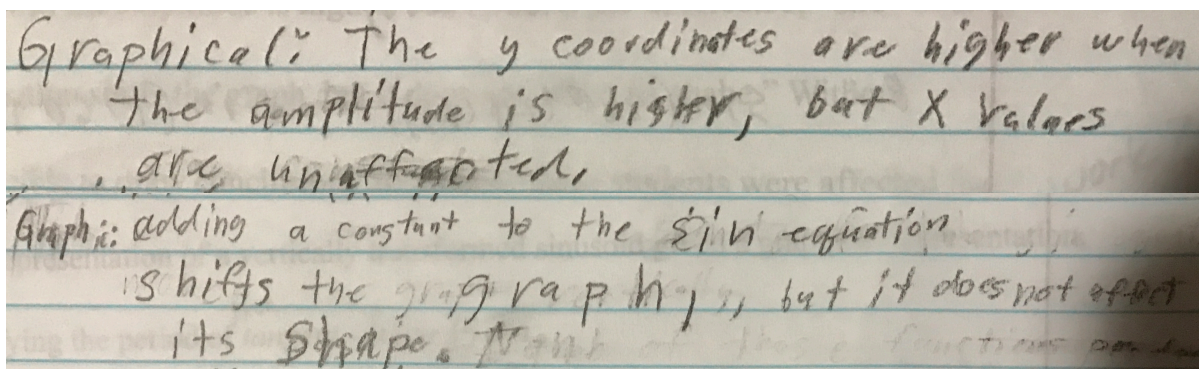 Graphical: The y coordinates are higher when
the amplitude is higher, but X Values
are unaffected.
Graphic: adding a constant to the sin equation
shifts the graph, but it does not affect
its Shape.